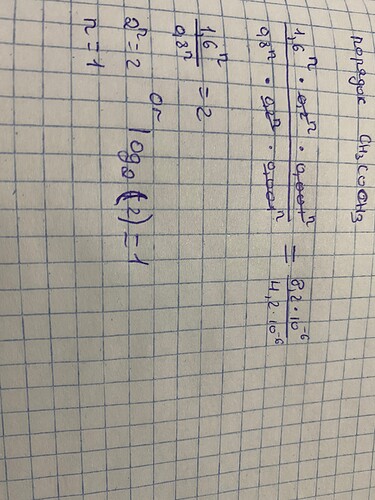 порядок CH3COCH3
1,6^n · 0,2^n · 0,001^n / 0,8^n · 0,2^n · 0,001^n = 8,2 · 10^-6 / 4,2 · 10^-6
1,6^n / 0,8^n = 2
2^n = 2 or log2(2) = 1
n = 1